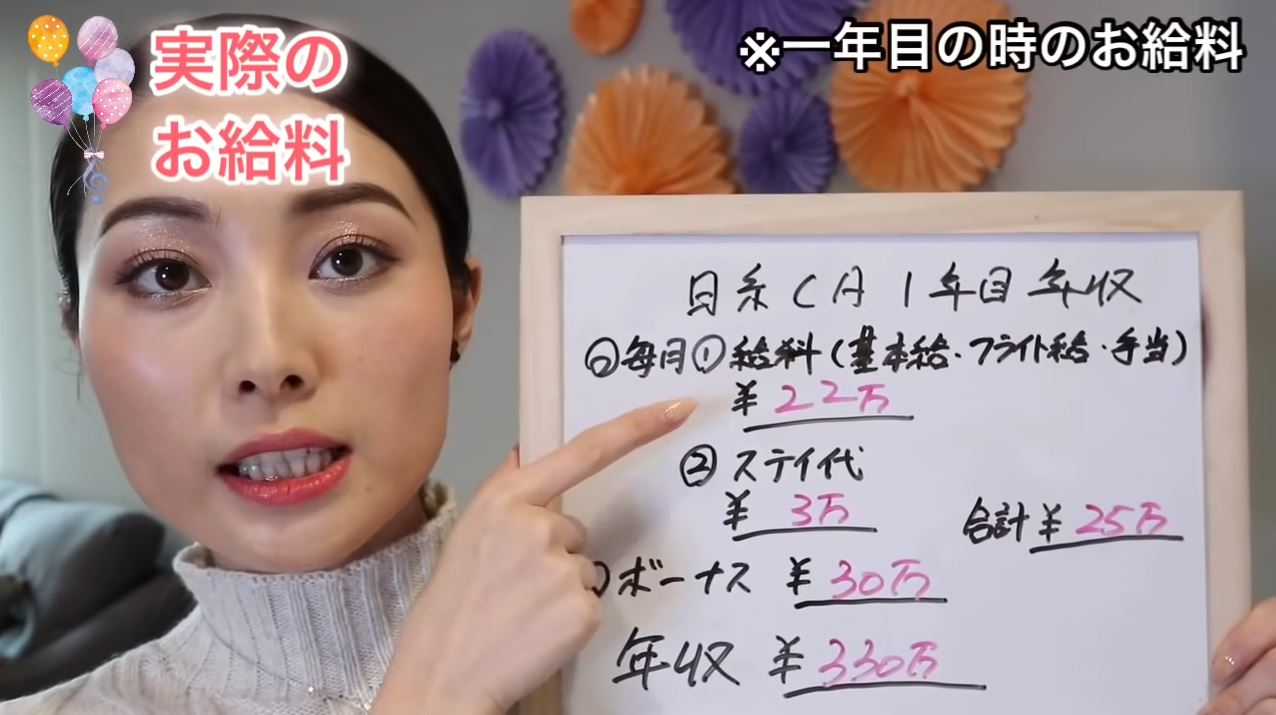 実際の
お給料
※一年目の時のお給料
日系CA 1年目 年収
○毎月①給料(基本給・フライト給・手当)
¥22万
②ステイ代
¥3万
合計¥25万
ボーナス ¥30万
年収 ¥330万